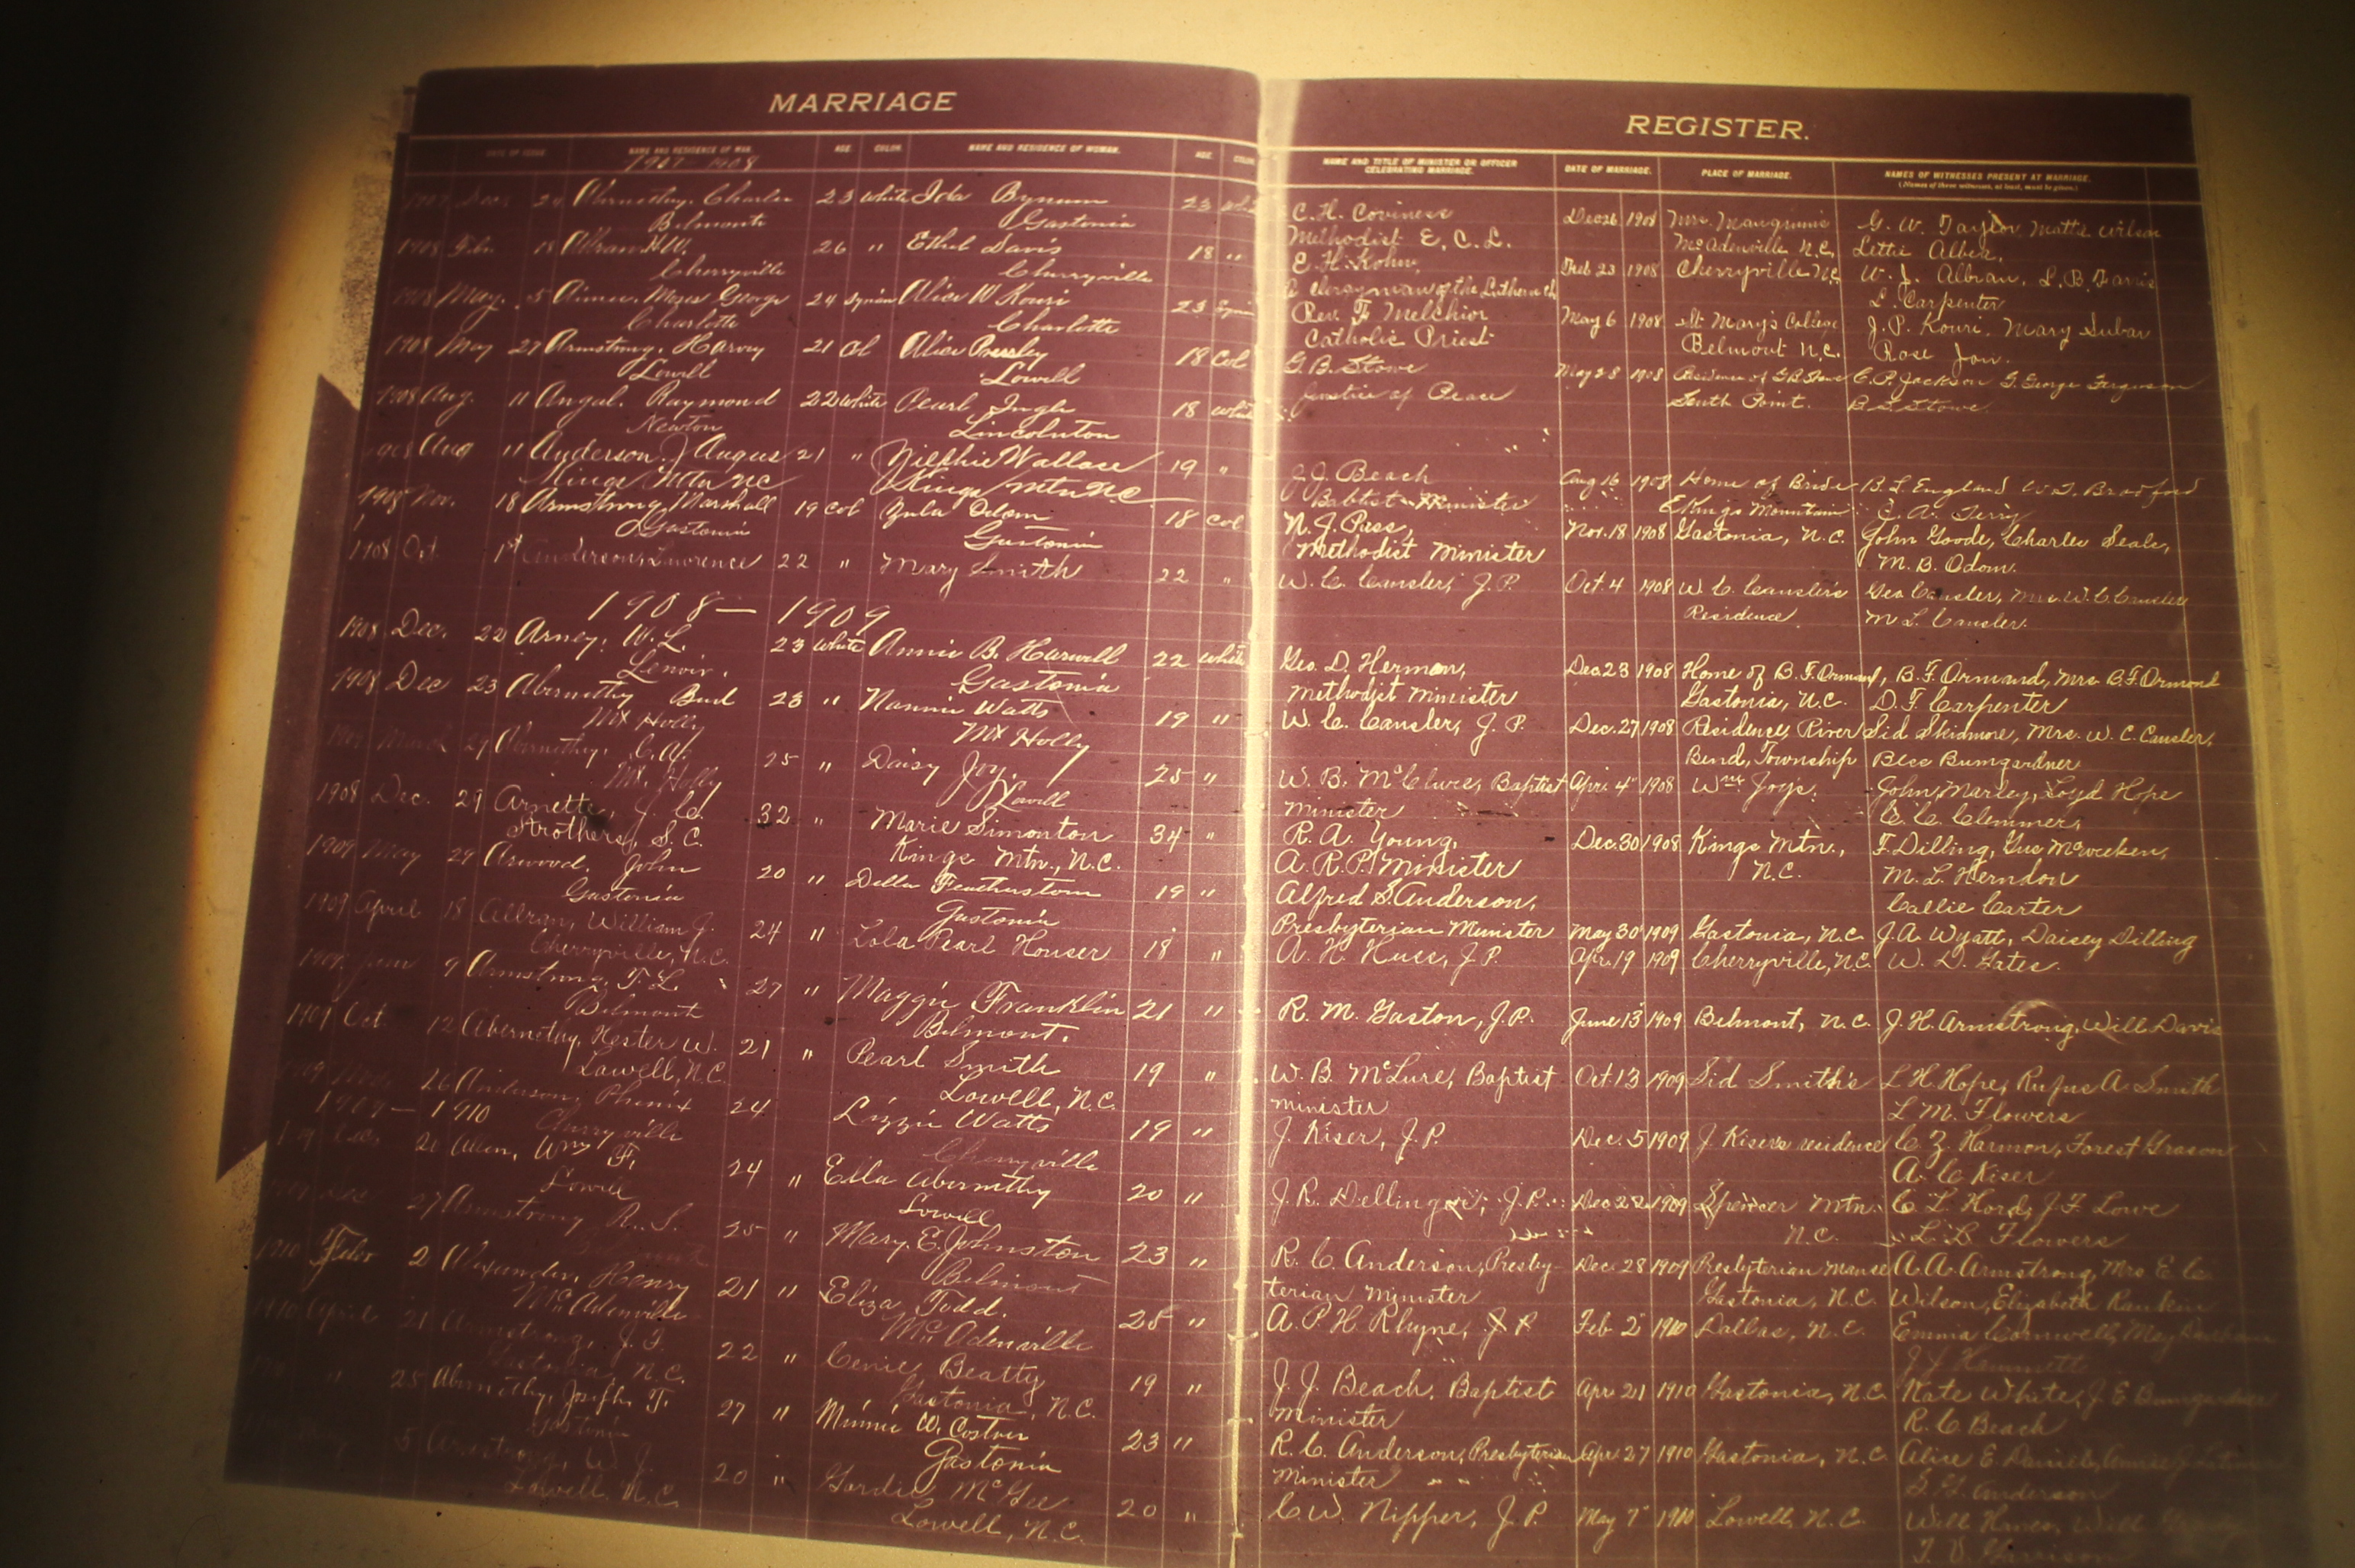 MARRIAGE
REGISTER.
DATE OF ISSUE. NAME AND RESIDENCE OF MAN. AGE. COLOR. NAME AND RESIDENCE OF WOMAN. AGE. COLOR.
NAME AND TITLE OF MINISTER OR OFFICER CELEBRATING MARRIAGE. DATE OF MARRIAGE. PLACE OF MARRIAGE. NAMES OF WITNESSES PRESENT AT MARRIAGE.
(Names of three witnesses, at least, must be given.)
1907-1908
1907 Dec 24 Abernethy, Charles 23 White Ida Bynum 23 White
Belmont Gastonia
1908 Feb. 18 26 " Ethel Davis 18 "
Cherryville Cherryville
1908 May. 5 Moses George 24 Syrian Alice W Kouri 23
Charlotte Charlotte
1908 May 27 Armstrong, Harvey 21 Col Alice Pressley 18 Col
Lowell Lowell
1908 Aug. 11 Angal. Raymond 22 White Pearl Ingle 18 White
Newton Lincolnton
1908 Aug 11 Anderson, J Augus 21 " Wallace 19 "
Kings Mtn NC Kings Mtn NC
1908 Nov. 18 Armstrong, Marshall 19 Col Zula Odom 18 Col
Gastonia Gastonia
1908 Oct 1st Anderson, Lawrence 22 " Mary Smith 22 "
1908-1909
1908 Dec. 22 Arney, W. L. 23 White Annie B. Harwell 22 White
Lenoir. Gastonia
1908 Dec 23 Abernethy Bud 23 " Nannie Watts 19 "
Mt Holly Mt Holly
March 29 Abernethy, C. A. 25 " Daisy Joy. 25 "
Mt. Holly Lowell
1908 Dec. 29 Arnette, J. C. 32 " Marie Simonton 34 "
Strothers, S. C. Kings Mtn., N.C.
1909 May 29 Arwood, John 20 " Della Featherstone 19 "
Gastonia Gastonia
1909 April 18 Allran, William J. 24 " Lola Pearl Houser 18 "
Cherryville, N.C.
1909 June 9 Armstrong, F. L. 27 " Maggie Franklin 21 "
Belmont Belmont.
1909 Oct. 12 Abernethy, Hester W. 21 " Pearl Smith 19 "
Lowell, N.C. Lowell, N.C.
26 Anderson, Phenix 24 Lizzie Watts 19 "
1909-1910 Cherryville Cherryville
Allen, Wm F. 24 " Ella Abernethy 20 "
Lowell Lowell
Dec 27 Armstrong R. S. 25 " Mary E. Johnston 23 "
Belmont
1910 Feb 2 Alexander, Henry 21 " Eliza Todd. 25 "
McAdenville McAdenville
1910 April 21 Armstrong, J. F. 22 " Beatty 19 "
Gastonia, N.C. Gastonia, N.C.
" 25 Abernethy, Joseph T. 27 " Minnie W. Costner 23 "
Gastonia Gastonia
5 Armstrong, W. J. 20 " McGee 20 "
Lowell, N.C. Lowell, N.C.
C. H. Dec 26 1908 Mrs. Mangum's G. W. Taylor, Mattie Wilson
Methodist E. C. L. McAdenville N.C. Lettie
E. H. Kohn, Feb 23 1908 Cherryville NC W. J. L. B.
A clergyman of the Lutheran ch L. Carpenter
Rev. F Melchior May 6 1908 St Mary's College J. P. Kouri. Mary
Catholic Priest Belmont N.C. Rose
G. B. Stowe May 28 1908 Residence of G B Stowe C. P. Jackson G. George Ferguson
Justice of Peace South Point. Stowe.
J. J. Beach Aug 16 1908 Home of Bride B. L. England Bradford
Babtist Minister Kings Mountain C. A. Terry
N. J. Pass, Nov. 18 1908 Gastonia, N. C. John Goode, Charles Seals,
Methodist Minister M. B. Odom.
W. C. Cansler, J. P. Oct. 4 1908 W. C. Cansler's Geo Cansler, Mrs. W. C. Cansler
Residence. M L. Cansler.
Geo. D. Herman, Dec. 23 1908 Home of B. F. Ormand, B. F. Ormand, Mrs B. F. Ormond
Methodist Minister Gastonia, N.C. D. F. Carpenter
W. C. Cansler, J. P. Dec. 27 1908 Residence, River Sid Skidmore, Mrs. W. C. Cansler,
Bend, Township Bumgardner
W. B. McClure, Baptist Apr. 4" 1908 Wm Joy's. John Marley, Loyd Hope
Minister C. C. Clemmer,
R. A. Young, Dec. 30 1908 Kings Mtn., F. Dilling,
A. R. P. Minister N.C. M. L. Herndon
Alfred S. Anderson, Callie Carter
Presbyterian Minister May 30 1909 Gastonia, N.C. J. A. Wyatt, Daisey Dilling
A. H. Huss, J. P. Apr. 19 1909 Cherryville, N.C. W. D. Gates.
R. M. Gaston, J. P. June 13 1909 Belmont, N.C. J. H. Armstrong, Will Davis
W. B. McLure, Baptist Oct. 13 1909 Sid Smith's L H Hope, Rufus A. Smith
Minister L M. Flowers
J. Kiser, J. P. Dec. 5 1909 J. Kisers residence C. Z. Harmon, Forest Grason
A. C Kiser
J. R. Dellinger, J. P. Dec 22 1909 Spencer Mtn. C. L. Hord, J. F. Lowe
N.C. Flowers
R. C. Anderson, Presby- Dec. 28 1909 Presbyterian Manse A. A. Armstrong, Mrs E C
terian Minister Gastonia, N.C. Wilson, Elizabeth Rankin
A. P H Rhyne, J P. Feb 2" 1910 Dallas, N.C. Emma Cornwell, May
J. J. Beach. Baptist Apr 21 1910 Gastonia, N.C. Kate White, J E Bumgardner
Minister R. C Beach
R. C. Anderson, Presbyterian Apr 27 1910 Gastonia, N.C. Alice E
Minister Anderson
C. W. Nipper, J. P. May 7" 1910 Lowell, N.C. Will